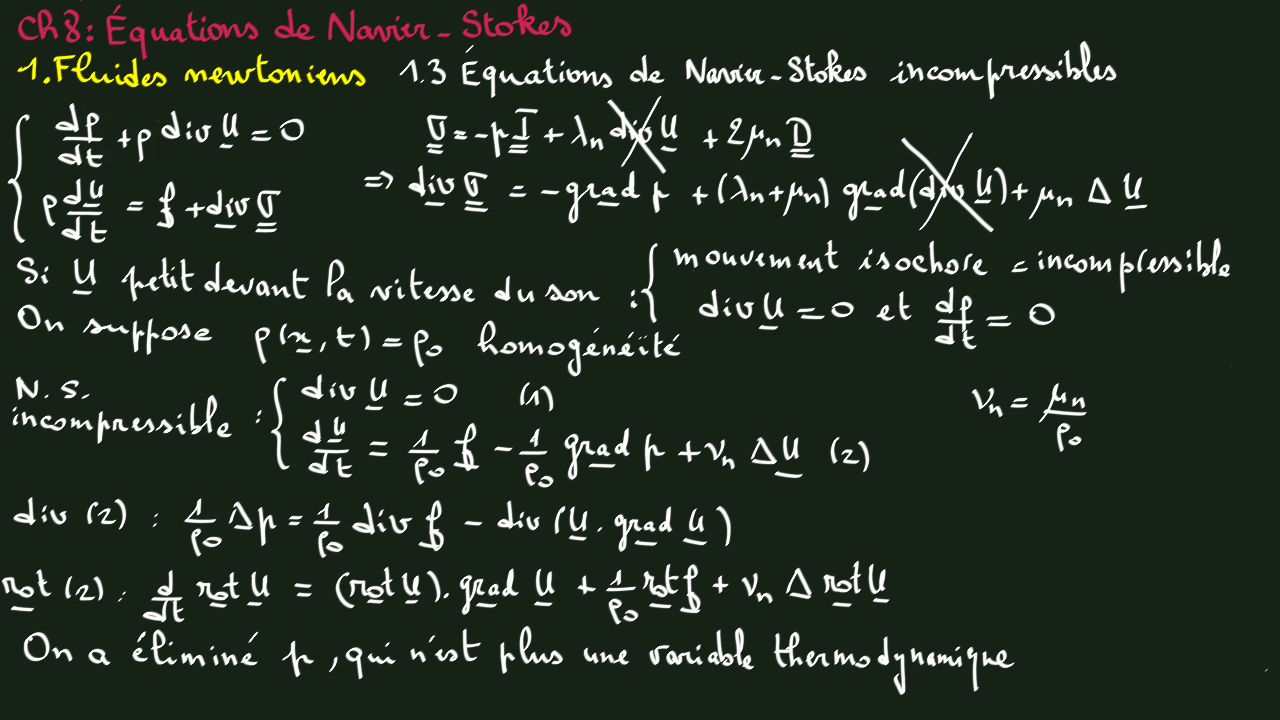 Ch8: Équations de Navier-Stokes
1. Fluides newtoniens 1.3 Équations de Navier-Stokes incompressibles
dρ/dt + ρ div U = 0 σ = -p I + λn div U + 2μn D
ρ dU/dt = f + div σ => div σ = -grad p + (λn+μn) grad(div U) + μn Δ U
Si U petit devant la vitesse du son : { mouvement isochore = incompressible
div U = 0 et dρ/dt = 0
On suppose ρ(x,t) = ρ0 homogénéïté
N.S. incompressible : { div U = 0 (1)
dU/dt = 1/ρ0 f - 1/ρ0 grad p + νn Δ U (2)
νn = μn/ρ0
div (2) : 1/ρ0 Δp = 1/ρ0 div f - div (U. grad U)
rot (2) : d/dt rot U = (rot U). grad U + 1/ρ0 rot f + νn Δ rot U
On a éliminé p, qui n'est plus une variable thermodynamique